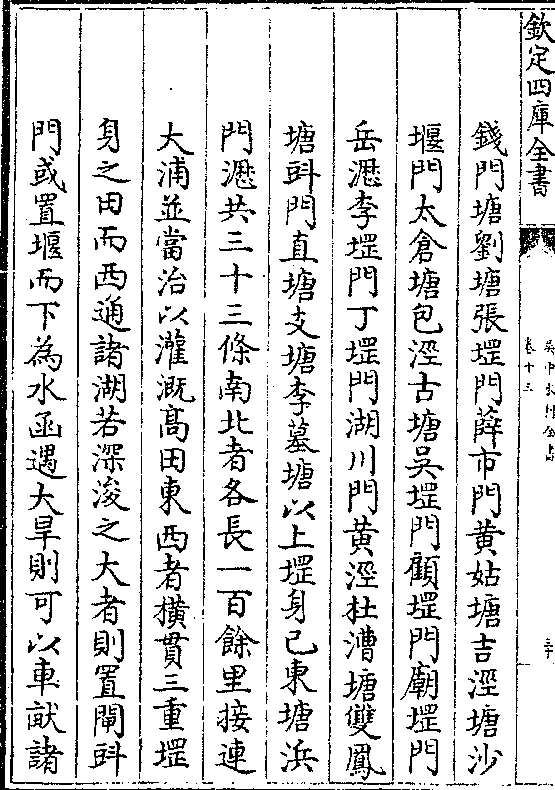 欽定四庫全書
卷十三
錢門塘劉塘張堽門薛市門黄姑塘吉涇塘沙
堰門太倉塘包涇古塘吳堽門顧堽門廟堽門
岳瀝李堽門丁堽門湖川門黄涇杜漕塘雙鳯
塘㪷門直塘支塘李墓塘以上堽身已東塘浜
門瀝共三十三條南北者各長一百餘里接連
大浦並當治以灌溉髙田東西者横貫三重堽
身之田而西通諸湖若深浚之大者則置閘㪷
門或置堰而下為水函遇大旱則可以車畎諸